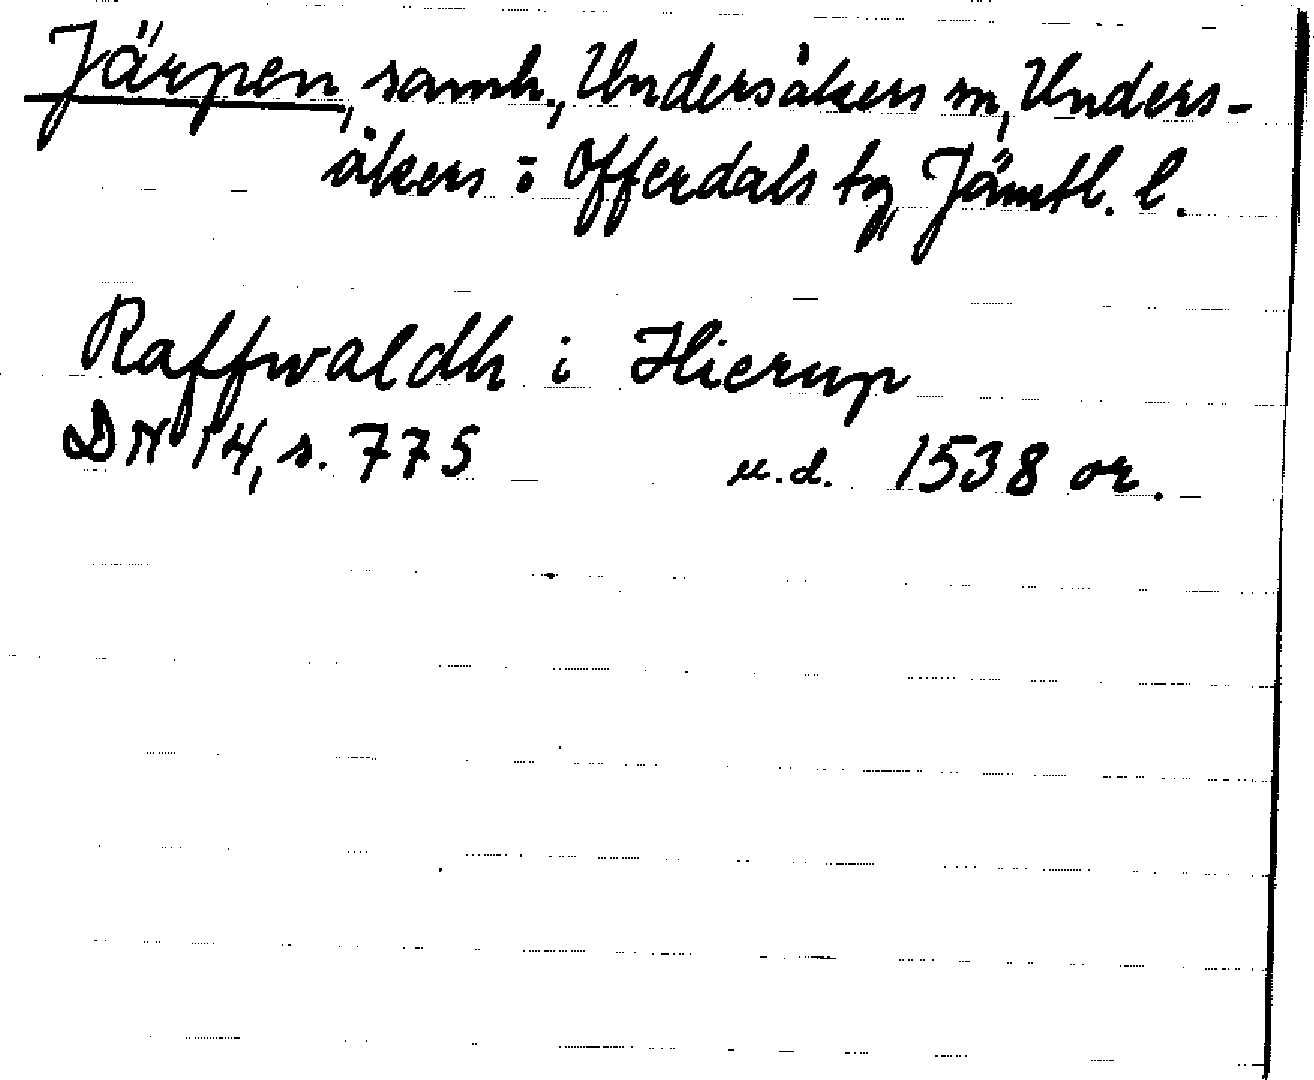 Järpen, samh., Undersåkers sn, Unders-
åkers o Offerdals tg, Jämtl. l.
Raffwaldh i Hierup
DN 14, s. 775 u.d. 1538 or.